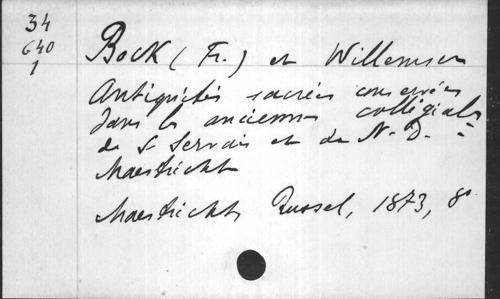 34
640
1
Bock (Fr.) et Willemsen
Antiquités sacrées conservées
dans les anciennes collégiales
de S Servais et de N. D. à
Maestricht
Maestricht, Russel, 1873, 8°